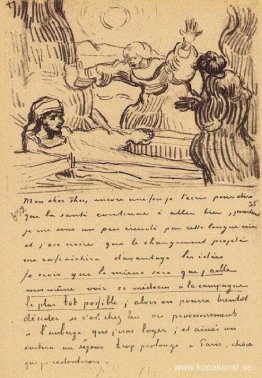 Mon cher Theo, encore une fois je t'écris pour dire
que la santé continue à aller bien, pourtant
je me sens un peu éreinté par cette longue crise
et j'ose croire que le changement projeté
me rafraichira davantage les idées
Je crois que le mieux sera que j'aille
moi même voir ce médecin à la campagne
le plus tot possible; alors on pourra bientot
décider si c'est chez lui ou provisoirement
à l'auberge que j'irai loger; et ainsi on
évitera un séjour trop prolongé à Paris, chose
que je redouterais.
www.kopiakonst.se